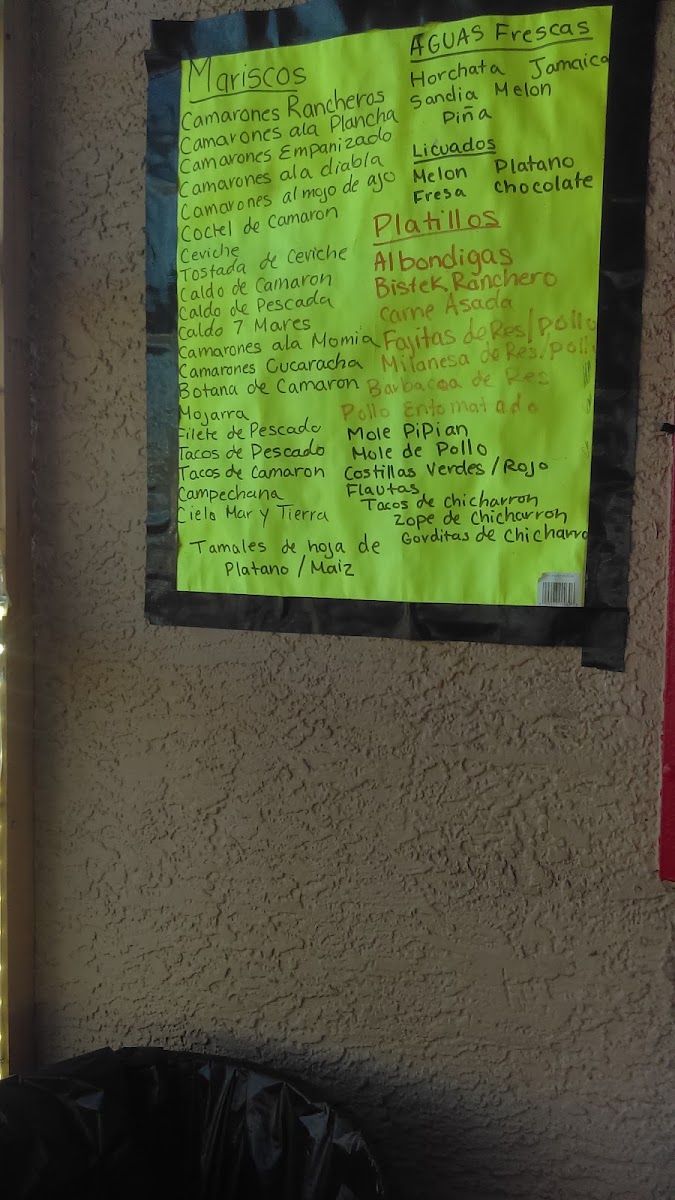 Mariscos
Camarones Rancheros
Camarones ala Plancha
Camarones Empanizado
Camarones ala diabla
Camarones al mojo de ajo
Coctel de Camaron
Ceviche
Tostada de Ceviche
Caldo de Camaron
Caldo de Pescada
Caldo 7 Mares
Camarones ala Momia
Camarones Cucaracha
Botana de Camaron
Mojarra
Filete de Pescado
Tacos de Pescado
Tacos de Camaron
Campechana
Cielo Mar y Tierra
Tamales de hoja de
Platano / Maiz
AGUAS Frescas
Horchata Jamaica
Sandia Melon
Piña
Licuados
Melon Platano
Fresa chocolate
Platillos
Albondigas
Bistek Ranchero
Carne Asada
Fajitas de Res/Pollo
Milanesa de Res/poll
Barbacoa de Res
Pollo Entomatado
Mole PiPian
Mole de Pollo
Costillas Verdes/Rojo
Flautas
Tacos de chicharron
Zope de Chicharron
Gorditas de Chicharro